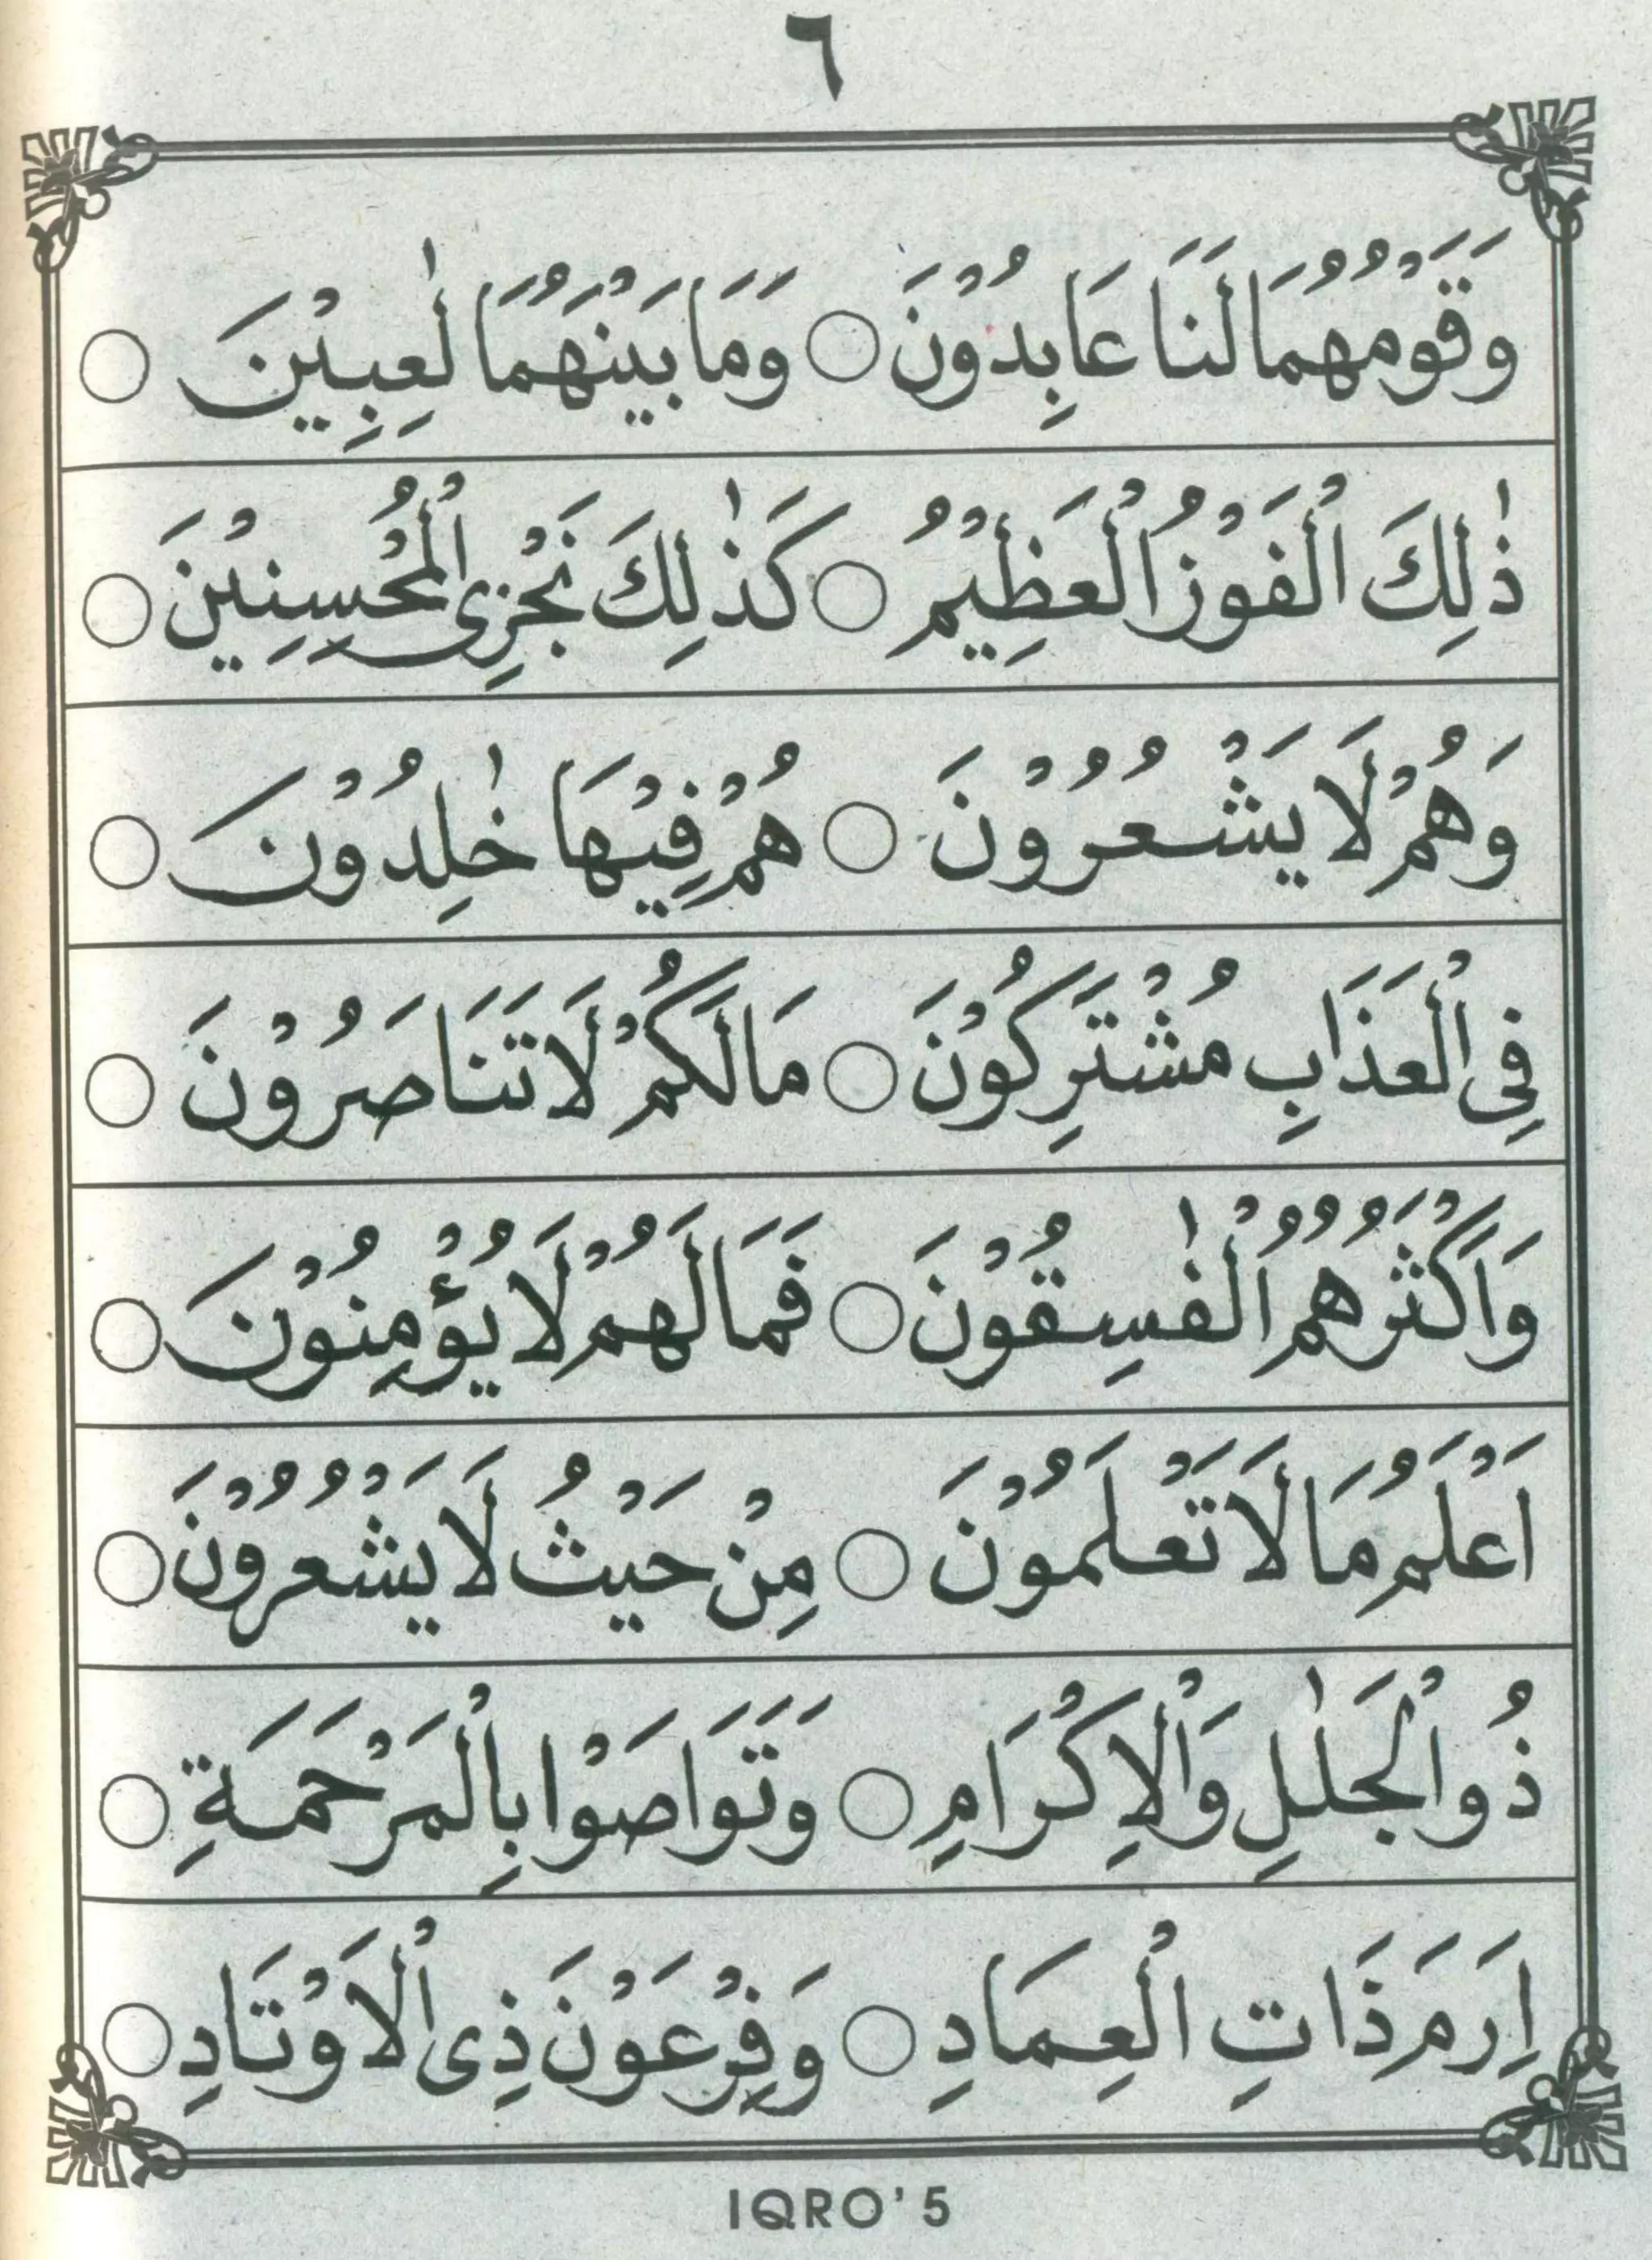 ٦
وَقَوْمُهُمَا لَنَا عَابِدُوْنَ ○ وَمَا بَيْنَهُمَا لٰعِبِيْنَ ○
ذٰلِكَ الْفَوْزُ الْعَظِيْمُ ○ كَذٰلِكَ نَجْزِى الْمُحْسِنِيْنَ ○
وَهُمْ لَا يَشْعُرُوْنَ ○ هُمْ فِيْهَا خٰلِدُوْنَ ○
فِى الْعَذَابِ مُشْتَرِكُوْنَ ○ مَالَكُمْ لَا تَنَاصَرُوْنَ ○
وَاَكْثَرُهُمُ الْفٰسِقُوْنَ ○ فَمَالَهُمْ لَا يُؤْمِنُوْنَ ○
اَعْلَمُ مَا لَا تَعْلَمُوْنَ ○ مِنْ حَيْثُ لَا يَشْعُرُوْنَ ○
ذُو الْجَلٰلِ وَالْاِكْرَامِ ○ وَتَوَاصَوْا بِالْمَرْحَمَةِ ○
اِرَمَ ذَاتِ الْعِمَادِ ○ وَفِرْعَوْنَ ذِى الْاَوْتَادِ ○
IQRO' 5